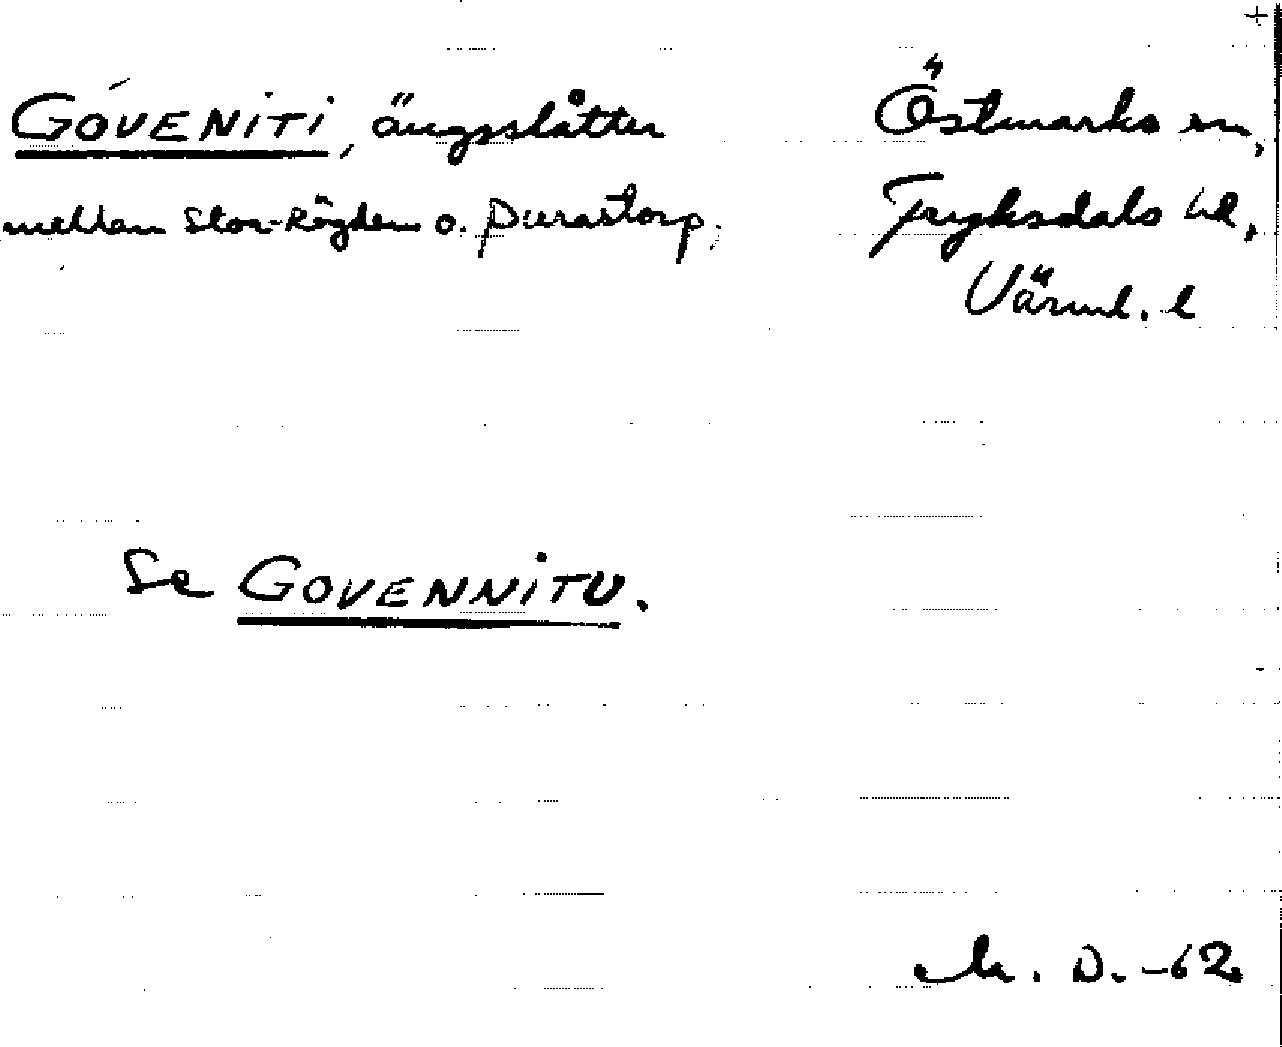 +
GÓVENITI, ängsslåtter
Östmarks sn,
mellan Stor-Rögden o. Purastorp,
Fryksdals hd,
Värml. l
Se GOVENNITU.
M. D. -62